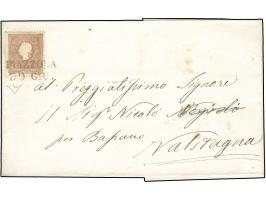 PIAZZOLA
GIU
al Preggiatissimo Signore
il Sig.r Nicolò Negrelo
per Bassano
Valstagna